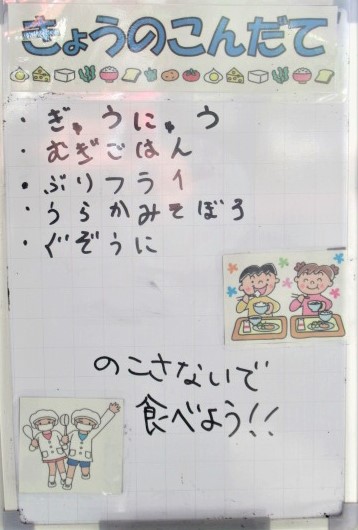 きょうのこんだて
・ぎゅうにゅう
・むぎごはん
・ぶりフライ
・うらかみそぼろ
・ぐぞうに
のこさないで
食べよう!!